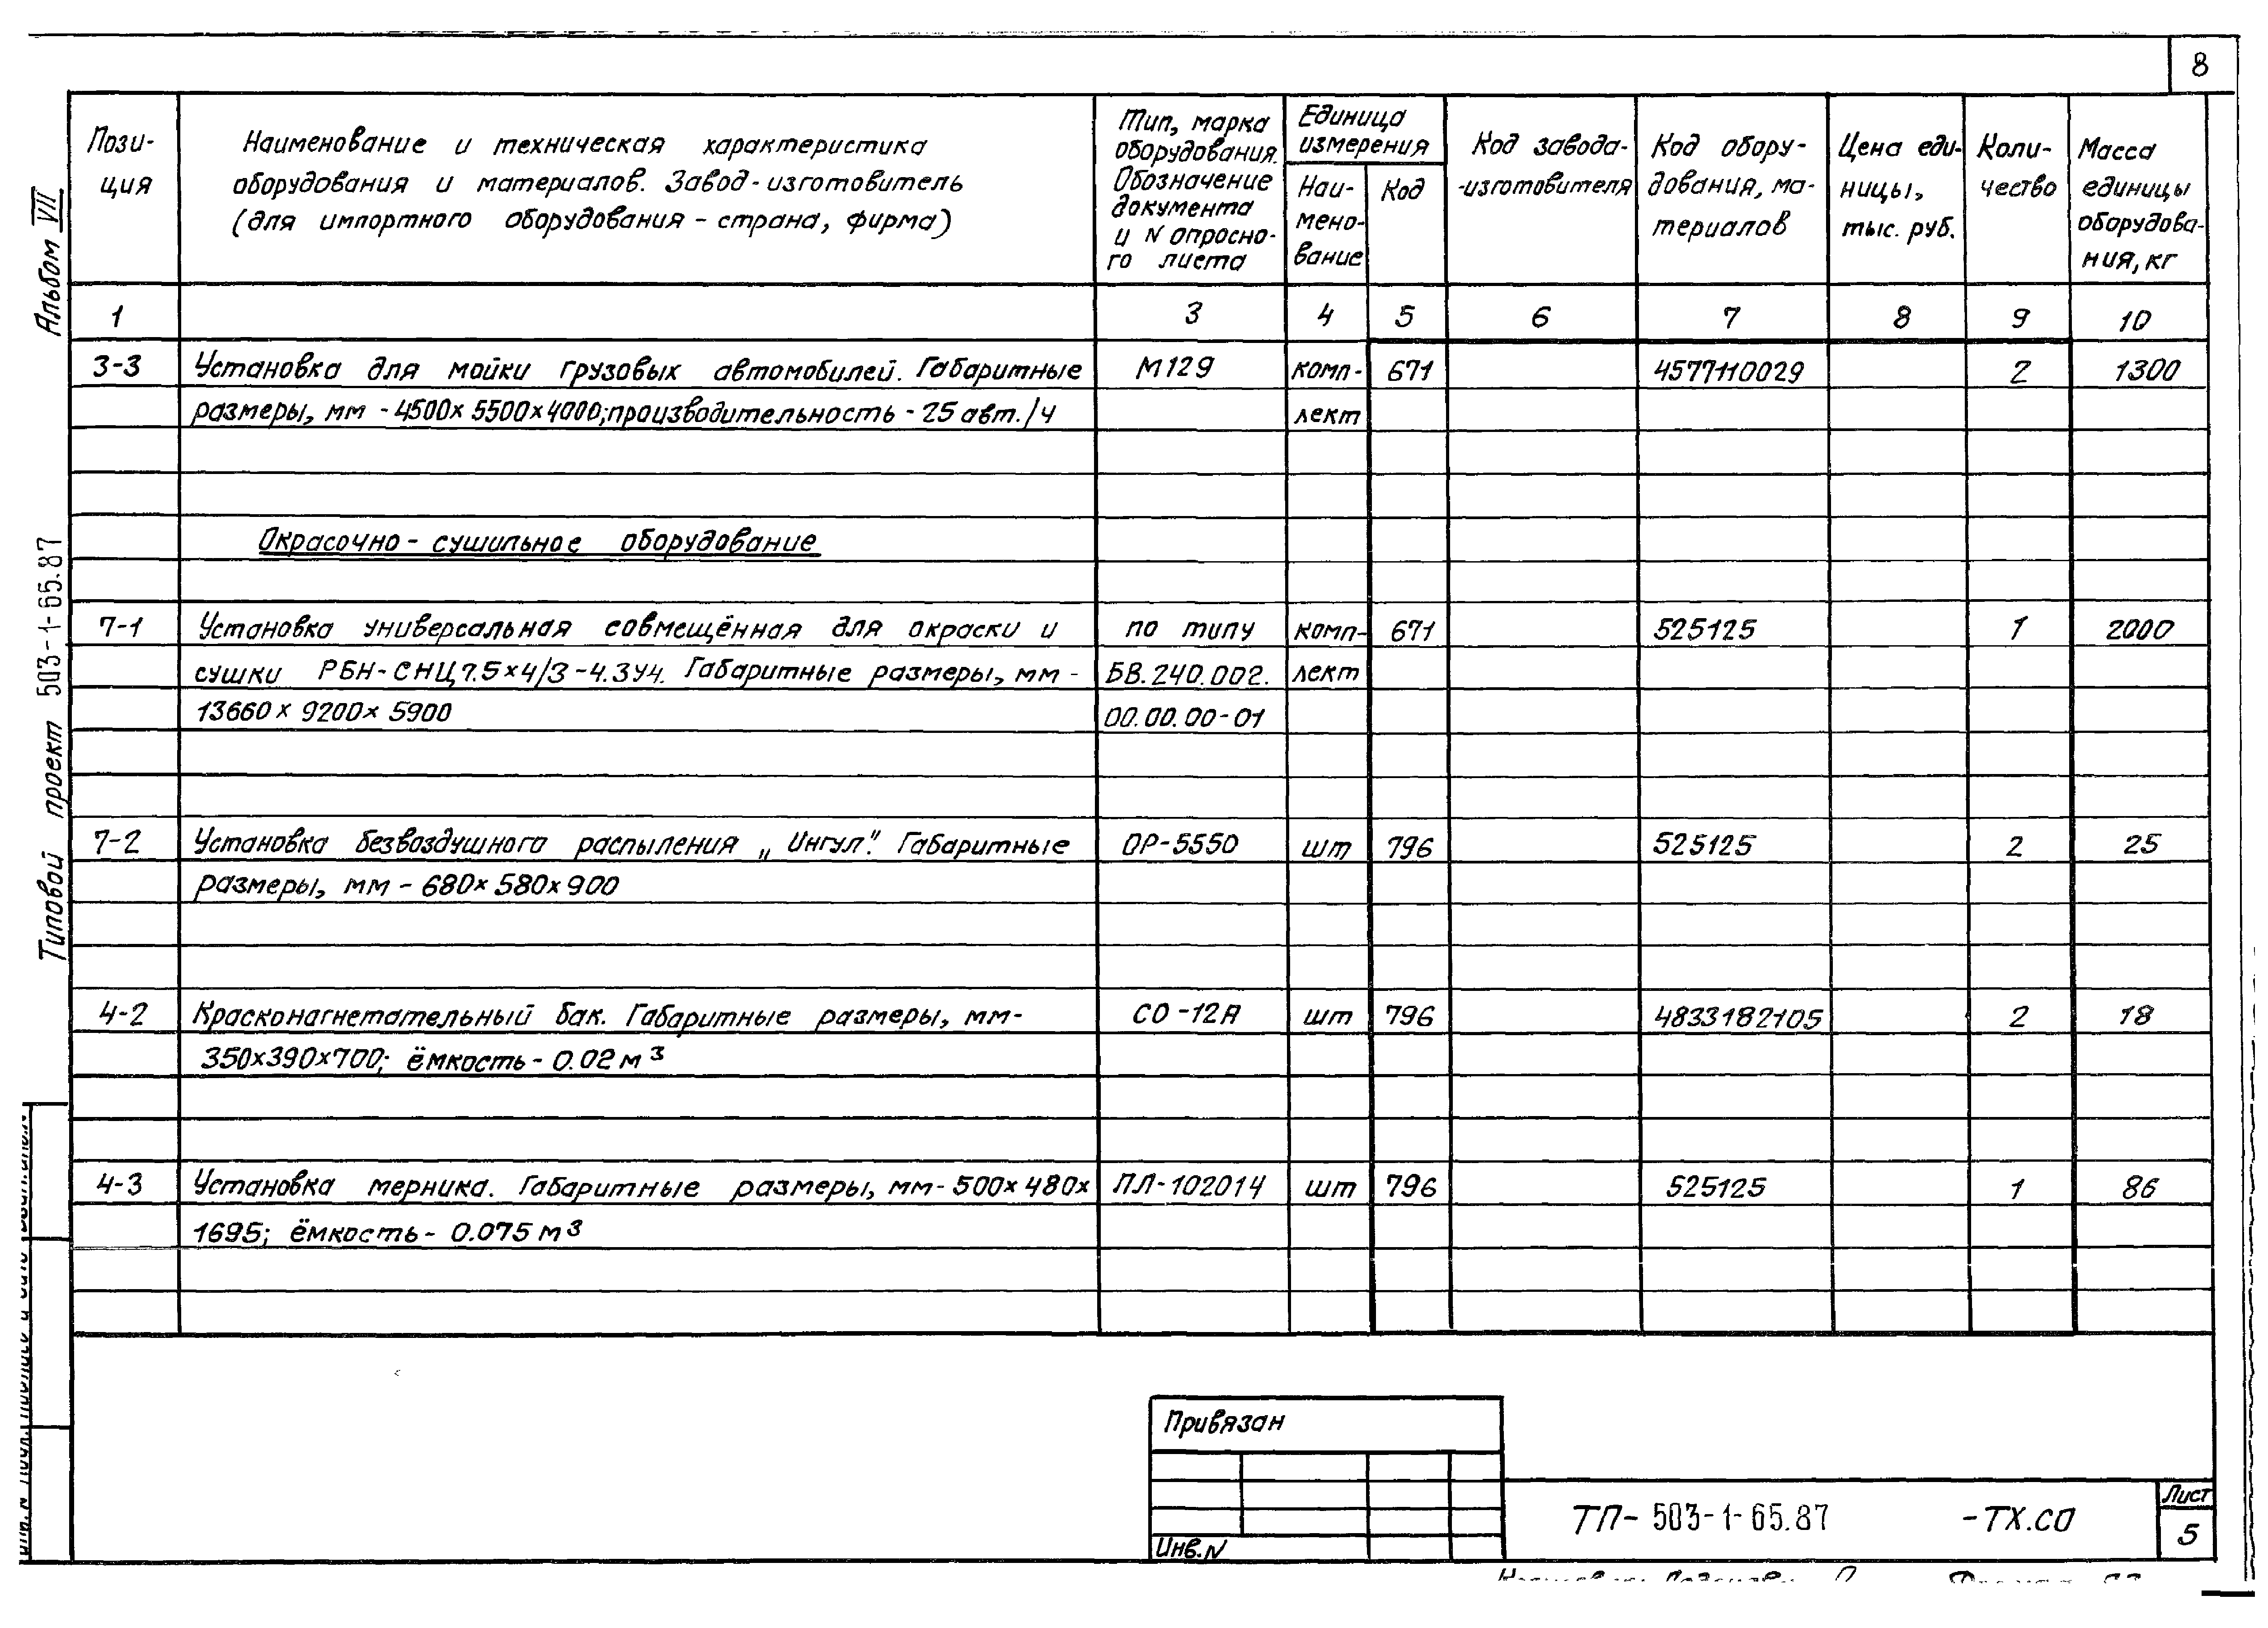 8
Пози-
ция
Наименование и техническая характеристика
оборудования и материалов. Завод-изготовитель
(для импортного оборудования - страна, фирма)
Тип, марка
оборудования.
Обозначение
документа
и N опросно-
го листа
Единица
измерения
Наи-
мено-
вание
Код
Код завода-
-изготовителя
Код обору-
дования, ма-
териалов
Цена еди-
ницы,
тыс. руб.
Коли-
чество
Масса
единицы
оборудова-
ния, кг
1 3 4 5 6 7 8 9 10
3-3 Установка для мойки грузовых автомобилей. Габаритные М129 комп- 671 4577110029 2 1300
размеры, мм - 4500х 5500х4000; производительность - 25 авт./ч лект
Окрасочно - сушильное оборудование
7-1 Установка универсальная совмещённая для окраски и по типу комп- 671 525125 1 2000
сушки РБН-СНЦ 7.5х4/3-4.3У4. Габаритные размеры, мм - БВ.240.002. лект
13660 х 9200х 5900 00.00.00-01
7-2 Установка безвоздушного распыления „Ингул". Габаритные ОР-5550 шт 796 525125 2 25
размеры, мм - 680х 580х 900
4-2 Красконагнетательный бак. Габаритные размеры, мм- СО-12А шт 796 4833182105 2 18
350х390х700; ёмкость - 0.02 м³
4-3 Установка мерника. Габаритные размеры, мм- 500х 480х ПЛ-102014 шт 796 525125 1 86
1695; ёмкость - 0.075 м³
Альбом VII
Типовой проект 503-1-65.87
Привязан
Инв.N
ТП- 503-1-65.87 -ТХ.СО
Лист
5